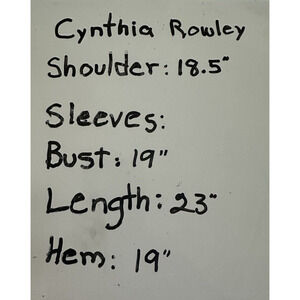 Cynthia Rowley
Shoulder: 18.5"
Sleeves:
Bust: 19"
Length: 23"
Hem: 19"